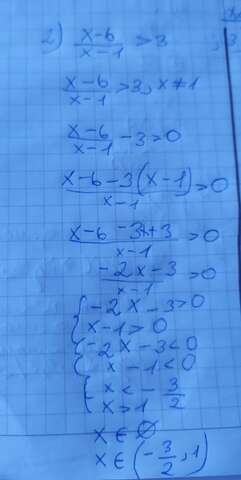 2) x-6/x-1 > 3
x-6/x-1 > 3, x≠1
x-6/x-1 - 3 > 0
x-6-3(x-1)/x-1 > 0
x-6-3x+3/x-1 > 0
-2x-3/x-1 > 0
{-2x-3>0
{x-1>0
{-2x-3<0
{x-1<0
{x<-3/2
{x>1
x∈∅
x∈(-3/2,1)